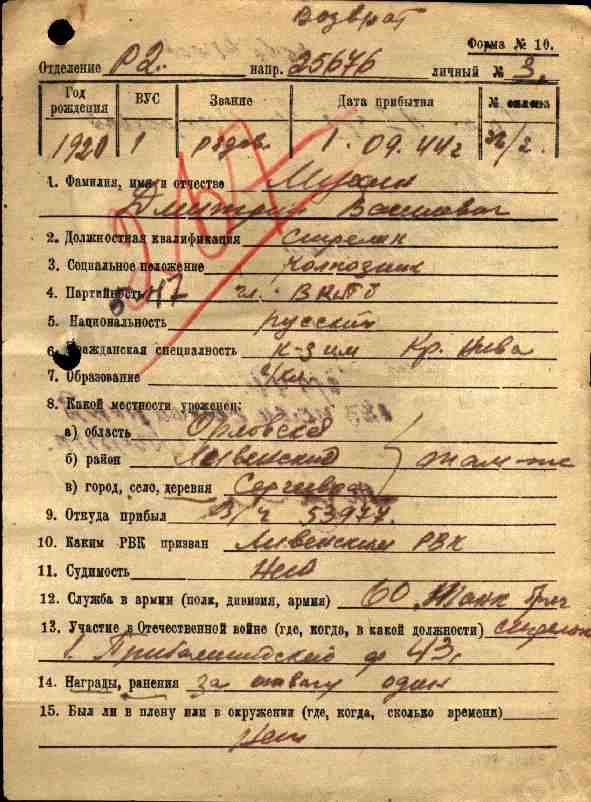 Возврат
Форма № 10.
Отделение Р2. напр. 25676 личный № 3.
Год рождения ВУС Звание Дата прибытия №
1920 1 рядов. 1.09.44г
1. Фамилия, имя и отчество Мухин
Дмитрий Василович
2. Должностная квалификация стрелок
3. Социальное положение колхозник
4. Партийность чл. ВКПб
547
5. Национальность русский
6. Гражданская специалность к-з им Кр. Нива
7. Образование
8. Какой местности уроженец:
а) область Орловской
б) район Ливенский там-же
в) город, село, деревня Сергиево
9. Откуда прибыл В/ч 53977.
10. Каким РВК призван Ливенским РВК
11. Судимость нет
12. Служба в армии (полк, дивизия, армия) 60 Танк бриг
13. Участие в Отечественной войне (где, когда, в какой должности) стрелок
1 Прибалтийский ф 43г
14. Награды, ранения за отвагу один
15. Был ли в плену или в окружении (где, когда, сколько времени)
нет